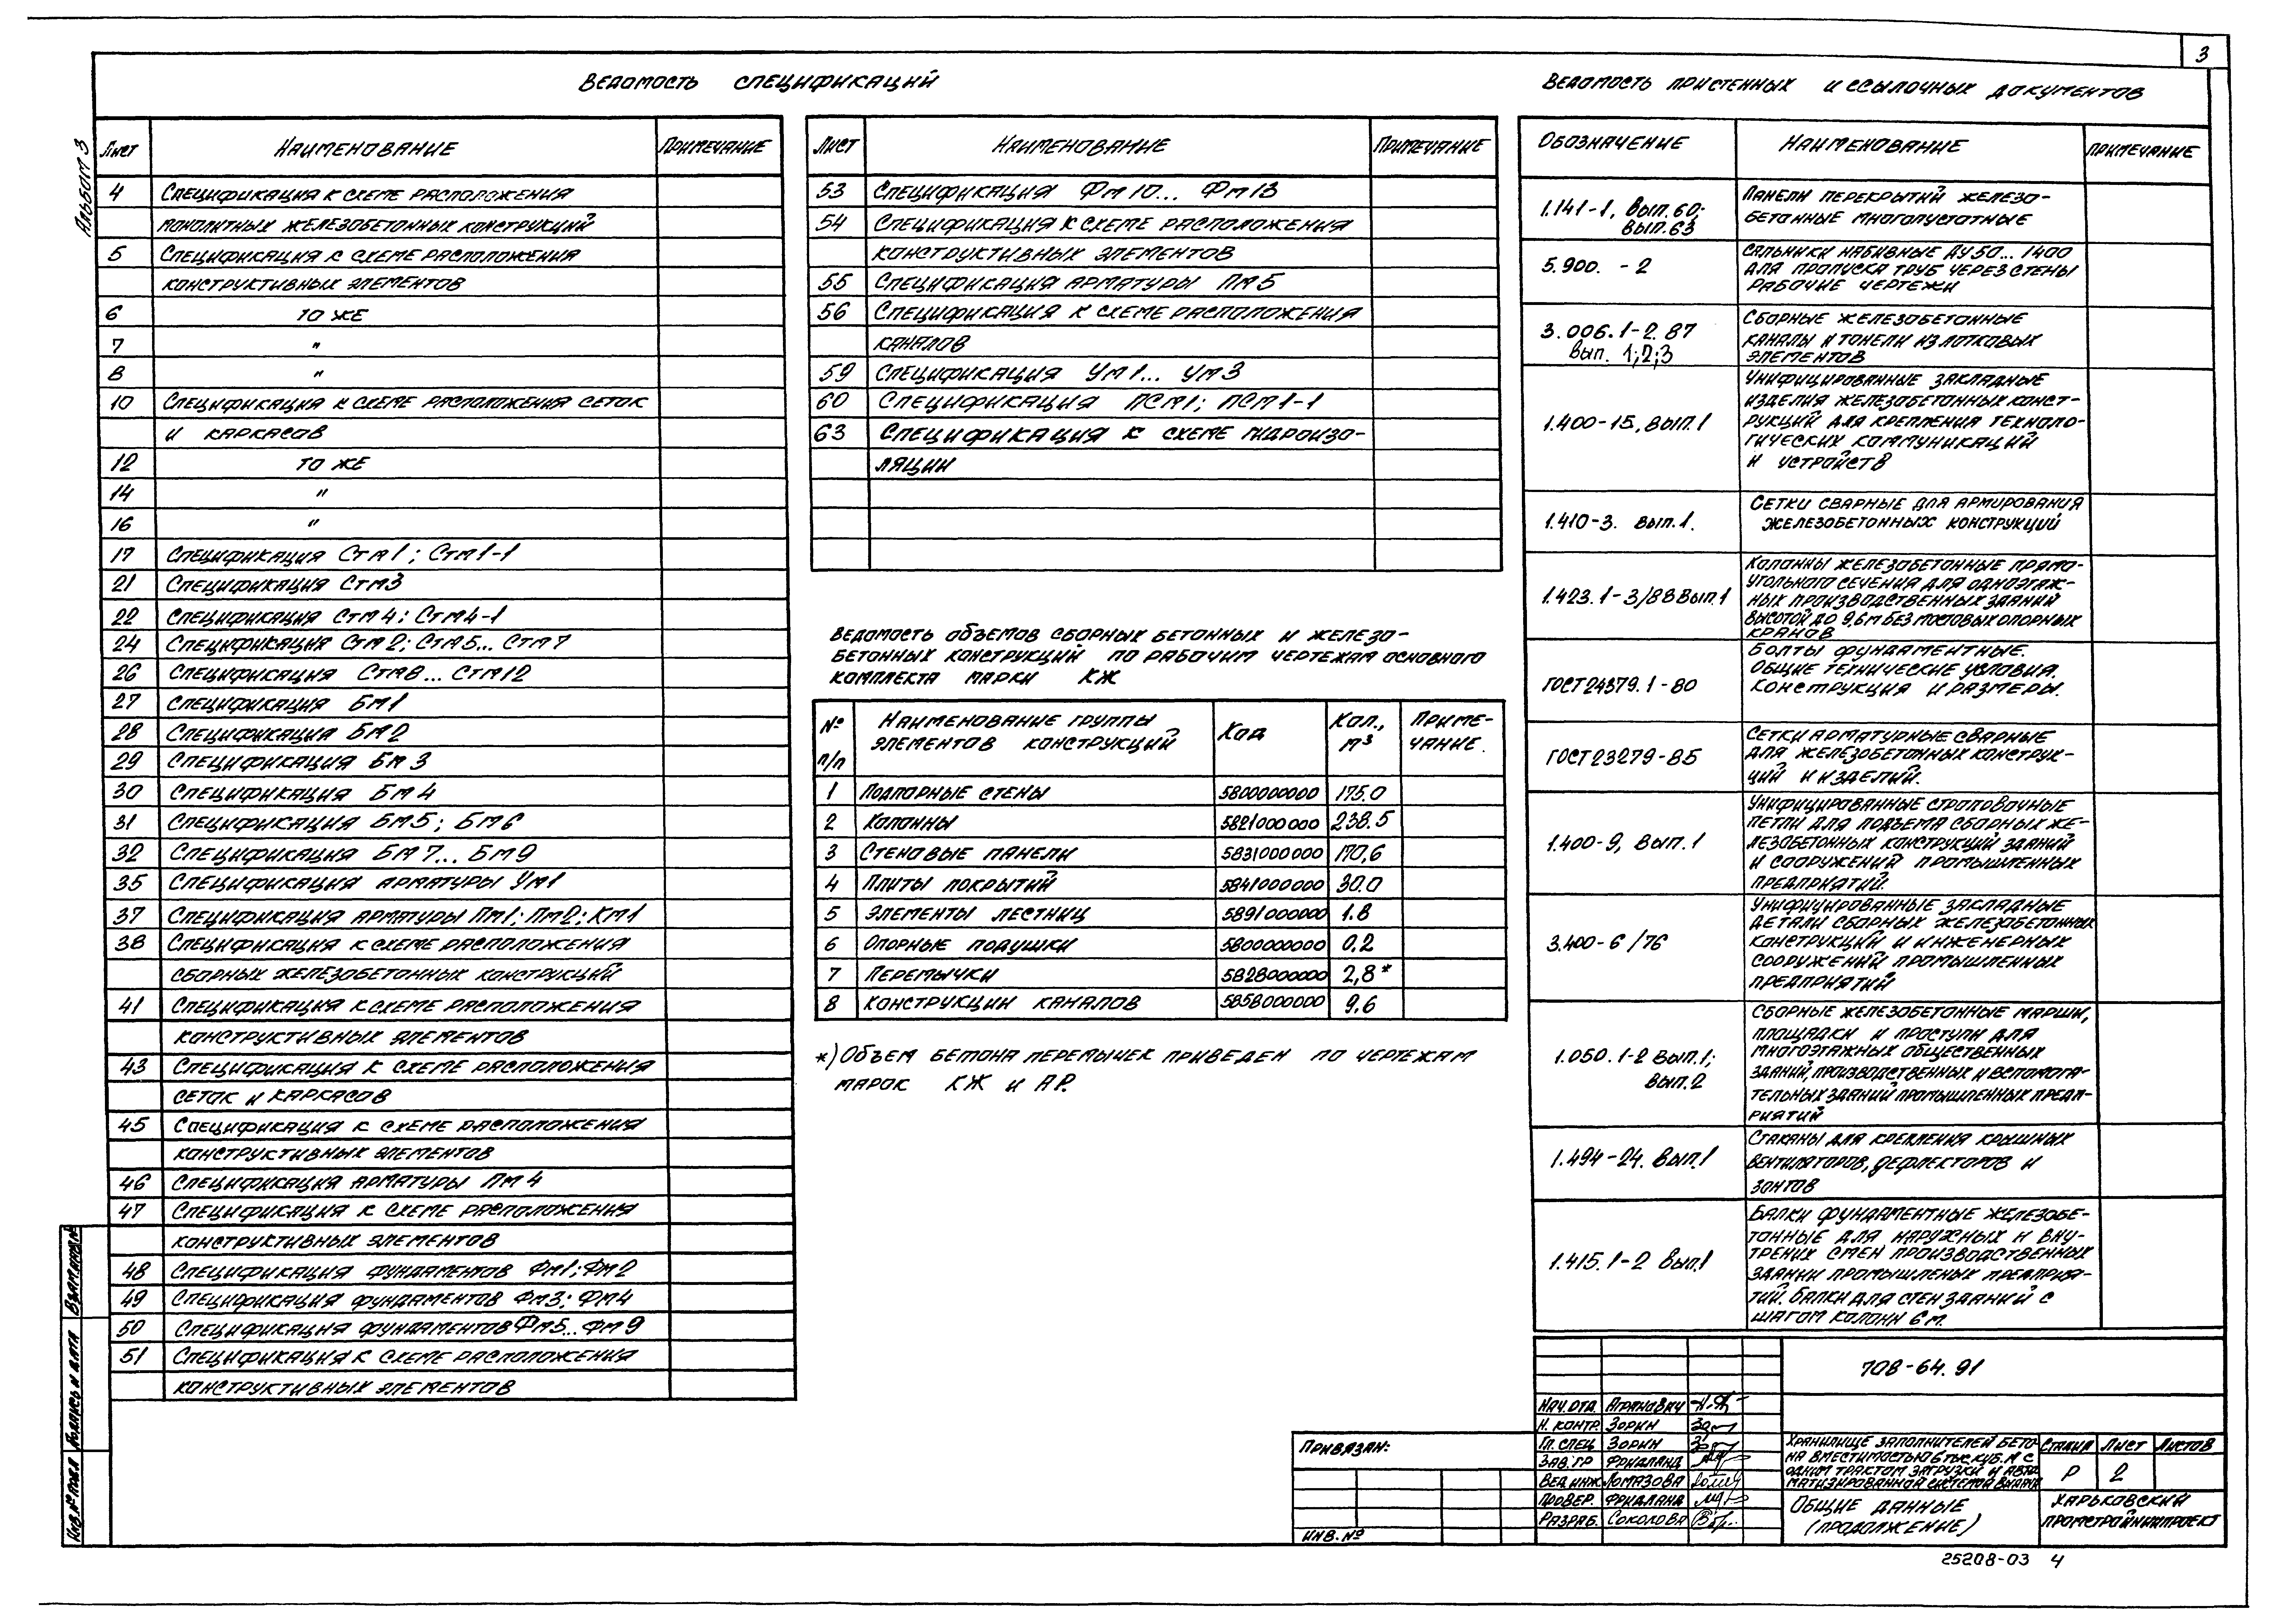 3
Альбом 3
Ведомость спецификаций
Лист Наименование Примечание
4 Спецификация к схеме расположения
монолитных железобетонных конструкций
5 Спецификация к схеме расположения
конструктивных элементов
6 то же
7 "
8 "
10 Спецификация к схеме расположения сеток
и каркасов
12 то же
14 "
16 "
17 Спецификация Стм1; Стм1-1
21 Спецификация Стм3
22 Спецификация Стм4; Стм4-1
24 Спецификация Стм2; Стм5... Стм7
26 Спецификация Стм8... Стм12
27 Спецификация Бм1
28 Спецификация Бм2
29 Спецификация Бм3
30 Спецификация Бм4
31 Спецификация Бм5; Бм6
32 Спецификация Бм7... Бм9
35 Спецификация арматуры Ум1
37 Спецификация арматуры Пм1; Пм2; Км1
38 Спецификация к схеме расположения
сборных железобетонных конструкций
41 Спецификация к схеме расположения
конструктивных элементов
43 Спецификация к схеме расположения
сеток и каркасов
45 Спецификация к схеме расположения
конструктивных элементов
46 Спецификация арматуры Пм4
47 Спецификация к схеме расположения
конструктивных элементов
48 Спецификация фундаментов Фм1; Фм2
49 Спецификация фундаментов Фм3; Фм4
50 Спецификация фундаментов Фм5... Фм9
51 Спецификация к схеме расположения
конструктивных элементов
Лист Наименование Примечание
53 Спецификация Фм10... Фм13
54 Спецификация к схеме расположения
конструктивных элементов
55 Спецификация арматуры Пм5
56 Спецификация к схеме расположения
каналов
59 Спецификация Ум1... Ум3
60 Спецификация ПСм1; ПСм1-1
63 Спецификация к схеме гидроизо-
ляции
Ведомость объемов сборных бетонных и железо-
бетонных конструкций по рабочим чертежам основного
комплекта марки КЖ
№ п/п Наименование группы элементов конструкций Код Кол., м³ Приме-чание.
1 Подпорные стены 5800000000 175.0
2 Колонны 5821000000 238.5
3 Стеновые панели 5831000000 170,6
4 Плиты покрытий 5841000000 30.0
5 Элементы лестниц 5891000000 1.8
6 Опорные подушки 5800000000 0,2
7 Перемычки 5828000000 2,8*
8 Конструкции каналов 5858000000 9,6
*) Объем бетона перемычек приведен по чертежам
марок КЖ и АР.
Ведомость пристенных и ссылочных документов
Обозначение Наименование Примечание
1.141-1, вып.60; Панели перекрытий железо-
вып.63 бетонные многопустотные
5.900. - 2 Сальники набивные Ду50... 1400
для пропуска труб через стены
рабочие чертежи
3.006.1-2.87 Сборные железобетонные
вып. 1;2;3 каналы и тонели из лотковых
элементов
1.400-15, вып.1 Унифицированные закладные
изделия железобетонных конст-
рукций для крепления техноло-
гических коммуникаций
и устройств
1.410-3. вып.1. Сетки сварные для армирования
железобетонных конструкций
1.423.1-3/88 Вып.1 Колонны железобетонные прямо-
угольного сечения для одноэтаж-
ных производственных зданий
высотой до 9,6м без мостовых опорных
кранов
ГОСТ 24379.1-80 Болты фундаментные.
Общие технические условия.
Конструкция и размеры.
ГОСТ 23279-85 Сетки арматурные сварные
для железобетонных конструк-
ций и изделий.
1.400-9, вып.1 Унифицированные строповочные
петли для подъема сборных же-
лезобетонных конструкций зданий
и сооружений промышленных
предприятий.
3.400-6/76 Унифицированные закладные
детали сборных железобетонных
конструкций и инженерных
сооружений промышленных
предприятий
1.050.1-2 вып.1; Сборные железобетонные марши,
вып.2 площадки и проступи для
многоэтажных общественных
зданий, производственных и вспомога-
тельных зданий промышленных предп-
риятий
1.494-24. вып.1 Стаканы для крепления крышных
вентиляторов, дефлекторов и
зонтов
1.415.1-2 вып.1 Балки фундаментные железобе-
тонные для наружных и вну-
трених стен производственных
здании промышленых предприя-
тий. Балки для стен зданий с
шагом колонн 6м.
708-64.91
Нач.отд. Агранович
Н. контр. Зорин
Гл. спец Зорин
Зав. гр Фридланд
Вед.инж Ломазова
Провер. Фридланд
Разраб. Соколова
Хранилище заполнителей бето-
на вместимостью 6 тыс.куб.м с
одним трактом загрузки и авто-
матизированной системой выдачи
Стадия Лист Листов
Р 2
Общие данные
(продолжение)
Харьковский
Промстройниипроект
Привязан:
Инв. №
Взам.инв.№
Подпись и дата
Инв.№ подл
25208-03 4